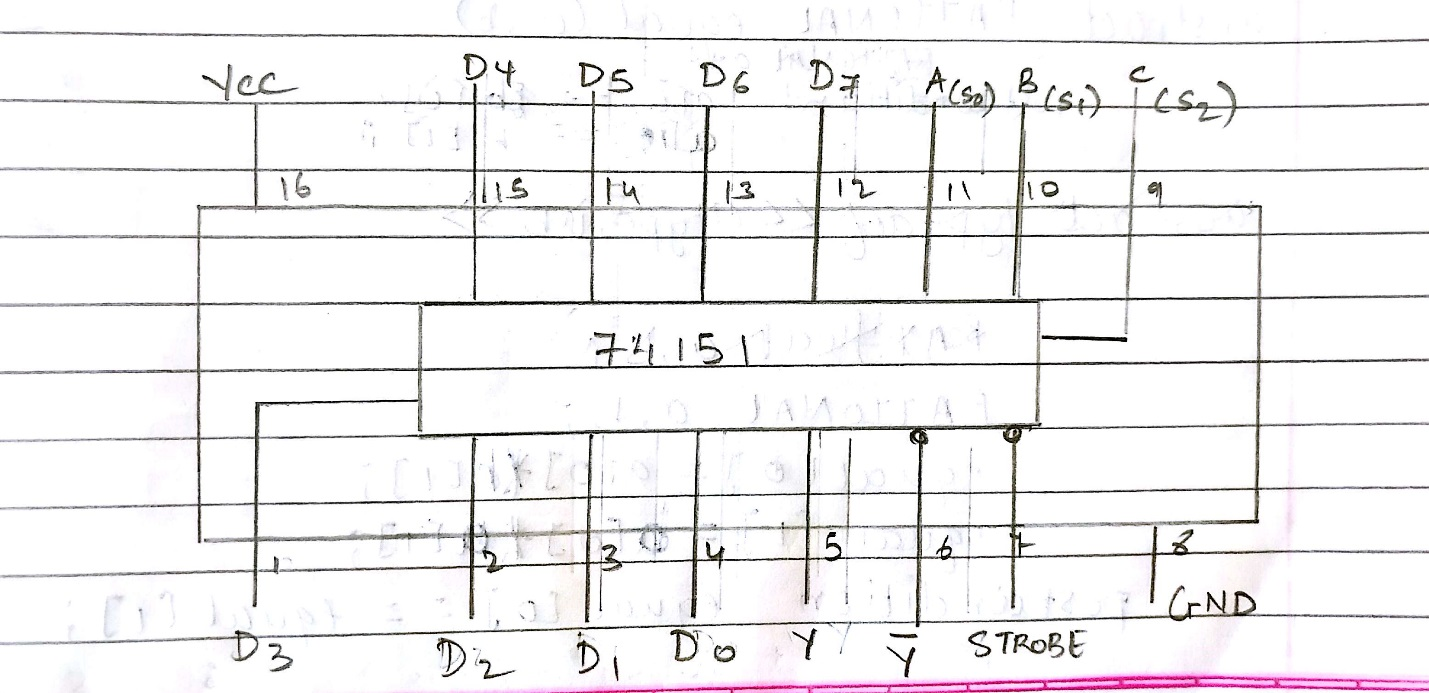 VCC D4 D5 D6 D7 A(S0) B(S1) C(S2)
16 15 14 13 12 11 10 9
74151
1 2 3 4 5 6 7 8
GND
D3 D2 D1 D0 Y Y̅ STROBE